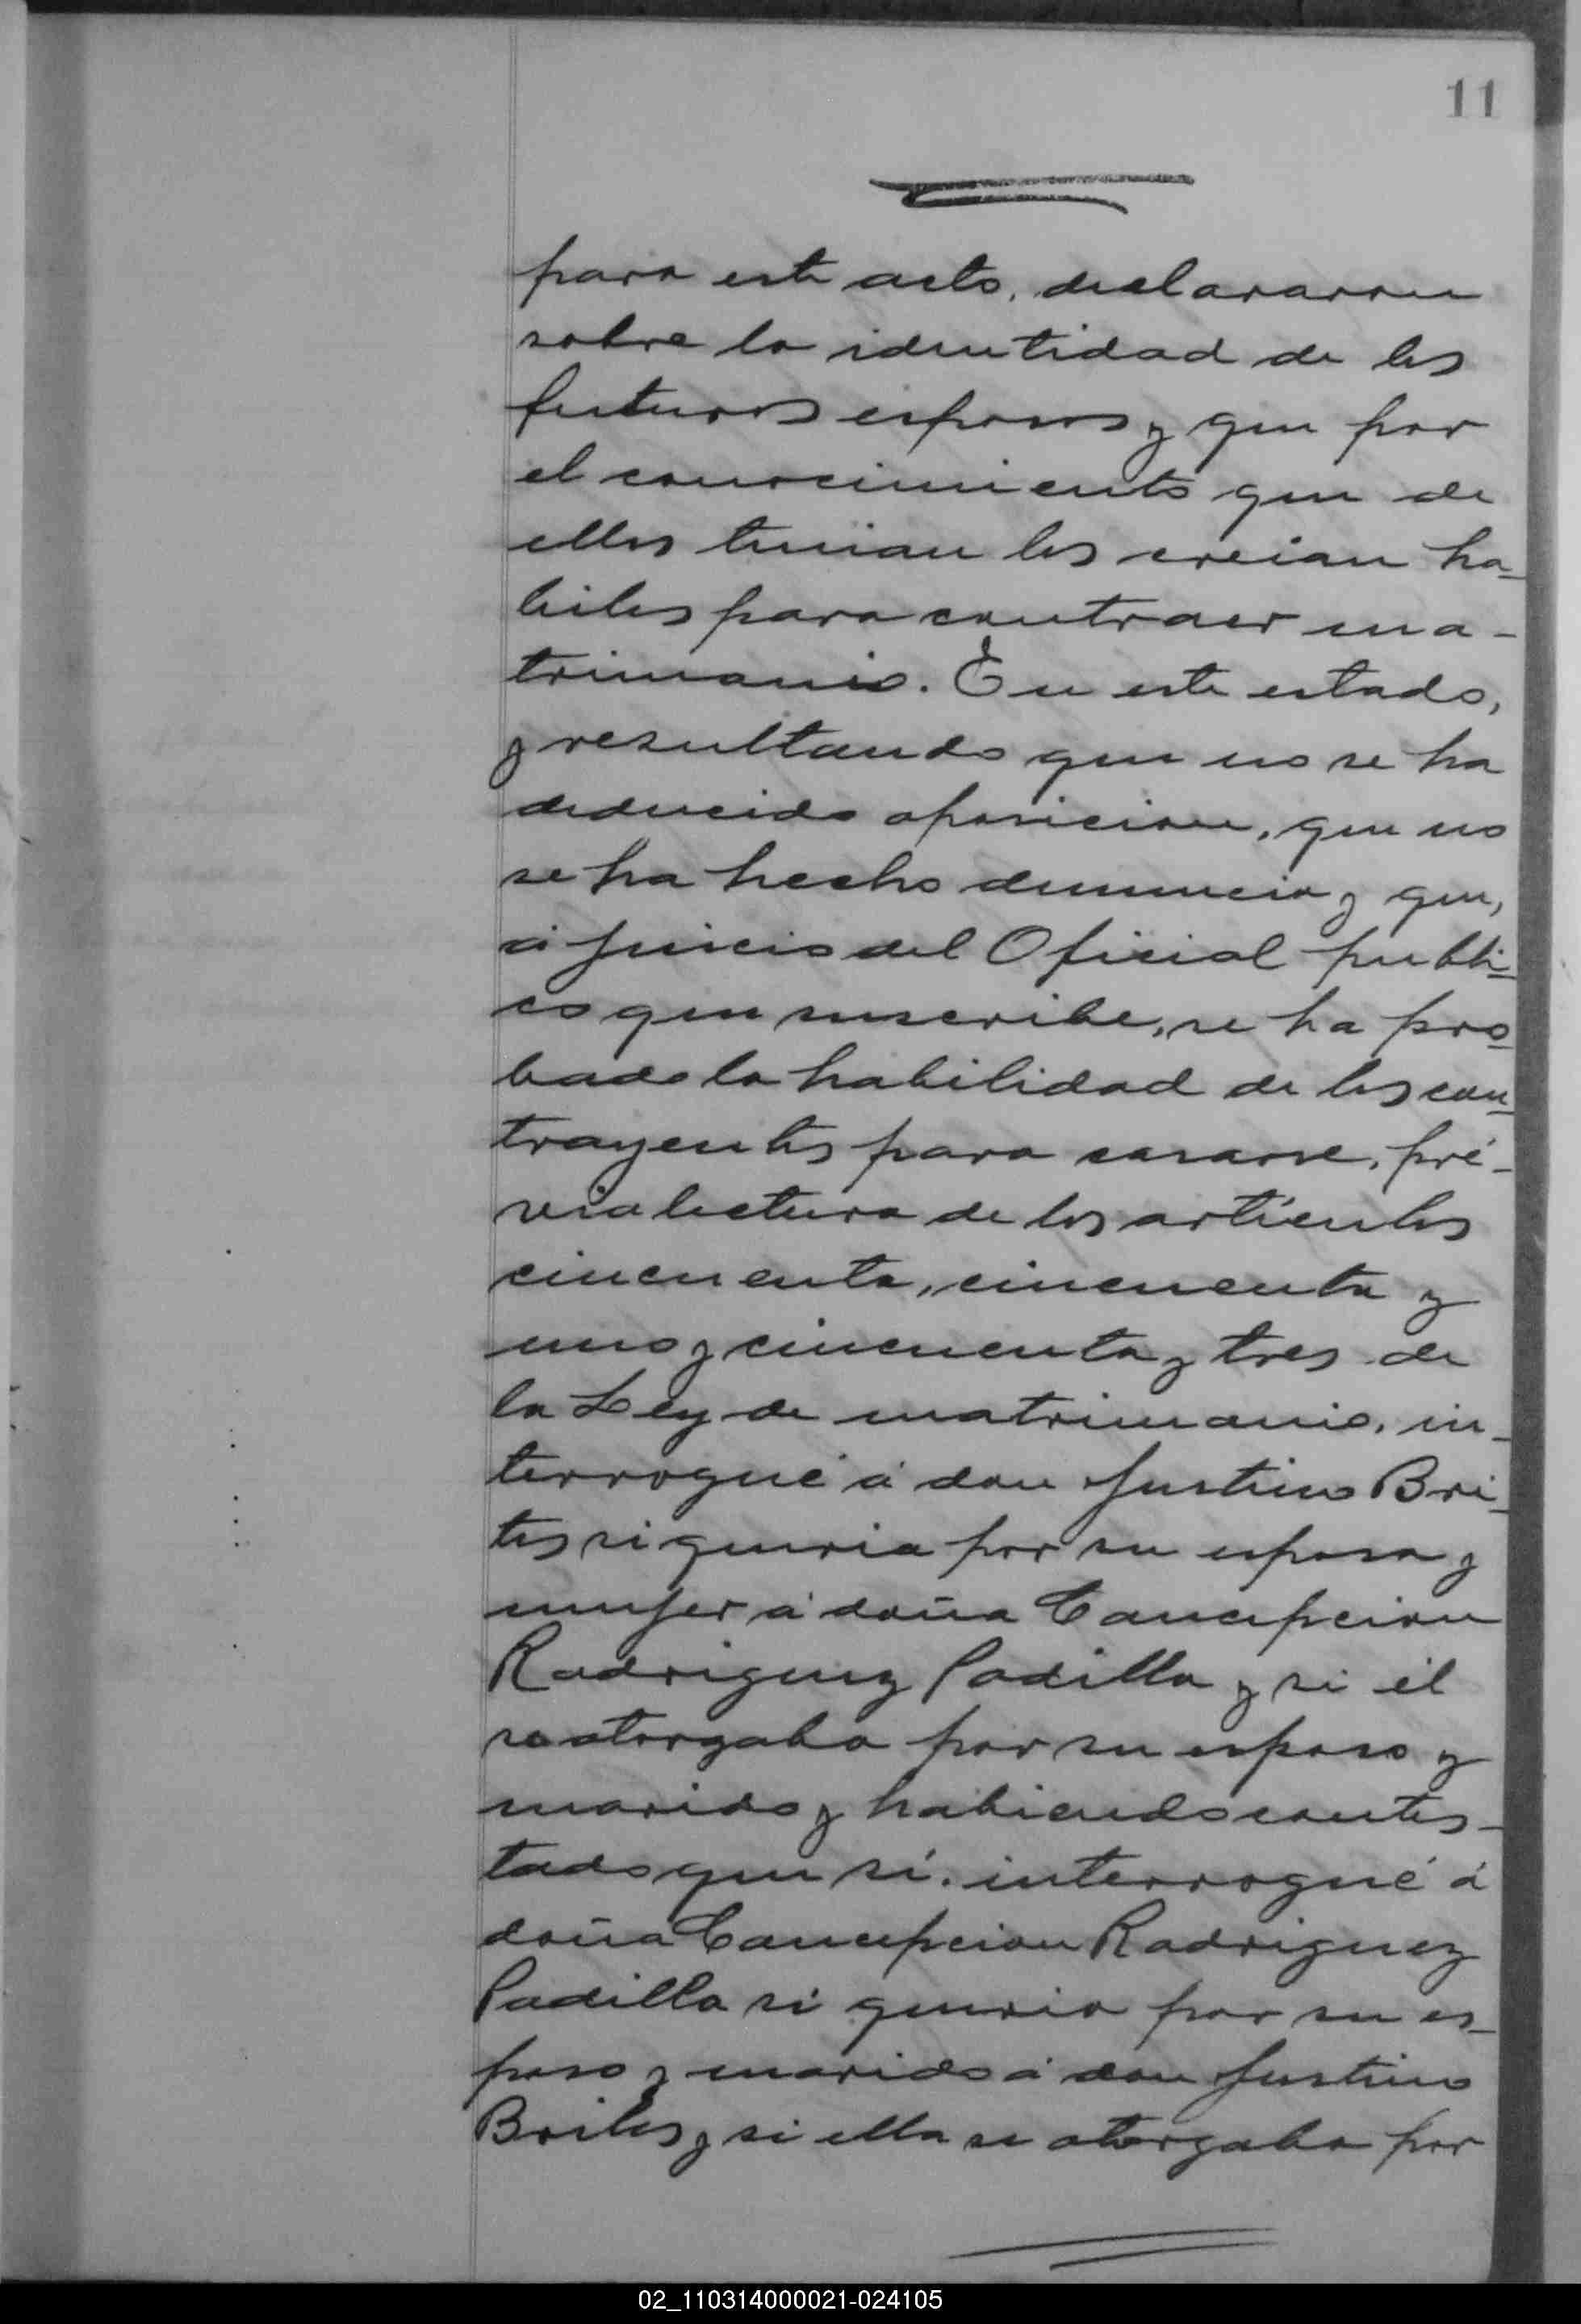 11
para este acto, declararon
sobre la identidad de los
futuros esposos y que por
el conocimiento que de
ellos tenian los creian ha-
biles para contraer ma-
trimonio. En este estado,
y resultando que no se ha
deducido oposicion, que no
se ha hecho denuncia y que,
á juicio del Oficial públi-
co que suscribe, se ha pro-
bado la habilidad de los con-
trayentes para casarse, pré-
via lectura de los artículos
cincuenta, cincuenta y
uno y cincuenta y tres de
la Ley de matrimonio, in-
terrogué á don Justino Bri-
tes si queria por su esposa y
mujer á doña Concepcion
Rodriguez Padilla y si él
se otorgaba por su esposo y
marido y habiendo contes-
tado que sí, interrogué á
doña Concepcion Rodriguez
Padilla si queria por su es-
poso y marido á don Justino
Brites y si ella se otorgaba por
02_110314000021-024105